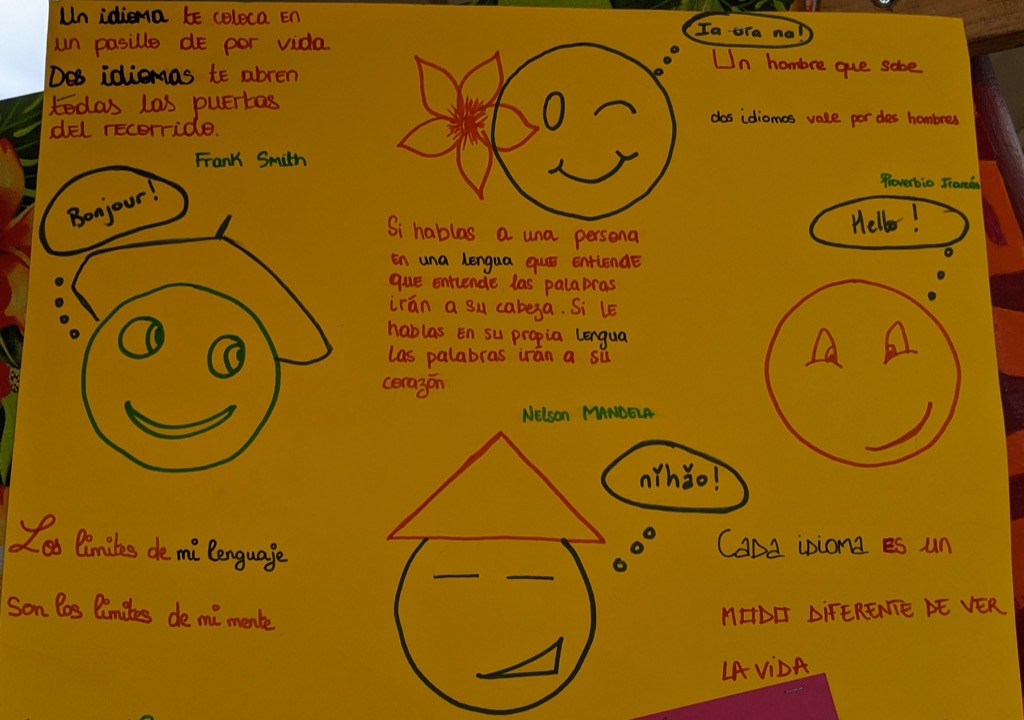 Un idioma te coloca en
un pasillo de por vida.
Dos idiomas te abren
todas las puertas
del recorrido.
Frank Smith
Ia ora na!
Un hombre que sabe
dos idiomas vale por dos hombres
Proverbio Francés
Bonjour!
Hello!
Si hablas a una persona
en una lengua que entiende
que entiende las palabras
irán a su cabeza. Si le
hablas en su propia lengua
las palabras irán a su
corazón
Nelson MANDELA
nǐhǎo!
Los límites de mi lenguaje
son los límites de mi mente
CADA IDIOMA ES UN
MODO DIFERENTE DE VER
LA VIDA